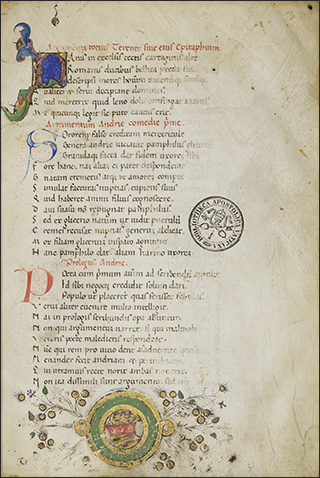 totius Terentii siue eius Epitaphium
Natus in excelsis tectis cartaginis alte
Romanis ducibus bellica preda fui
Descripsi mores hominum iuuenumque senumque
Qualiter et serui decipiant dominos
Quid meretrix quid leno dolis confingat auarus
Hec quicunque legit sic puto cautus erit
Argumentum Andrie comedie
Sororem falso creditam meretricule
Genere andrie uiciauit pamphilus
Grauidaque facta dat fidem uxorem sibi
Fore hanc. nam aliam ei pater desponderat
Gnatam cremetis atque ut amorem comperit
Simulat futuras nuptias cupiens suus
Quid haberet animi filius cognoscere
Daui suasu non repugnat pamphilus
Sed ex glicerio natum ut uidit puerulum
Cremes recusat nuptias generum abdicat
Mox filiam glicerium insperato agnitam
Hanc pamphilo dat aliam harino uxorem
Prologus Andrie
Poeta cum primum animum ad scribendum appulit
Id sibi negocii credidit solum dari
Populo ut placerent quas fecisset fabulas
Verum aliter euenire multo intelligit
Nam in prologis scribundis opera abutitur
Non qui argumentum narret sed qui maliuoli
Veteris poete maledictis respondeat
Nunc quam rem uitio dent queso animum aduertite
Menander fecit andriam et perinthiam
Qui utramuis recte norit ambas nouerit
Non ita dissimili sunt argumento sed tamen
BIBLIOTECA APOSTOLICA VATICANA